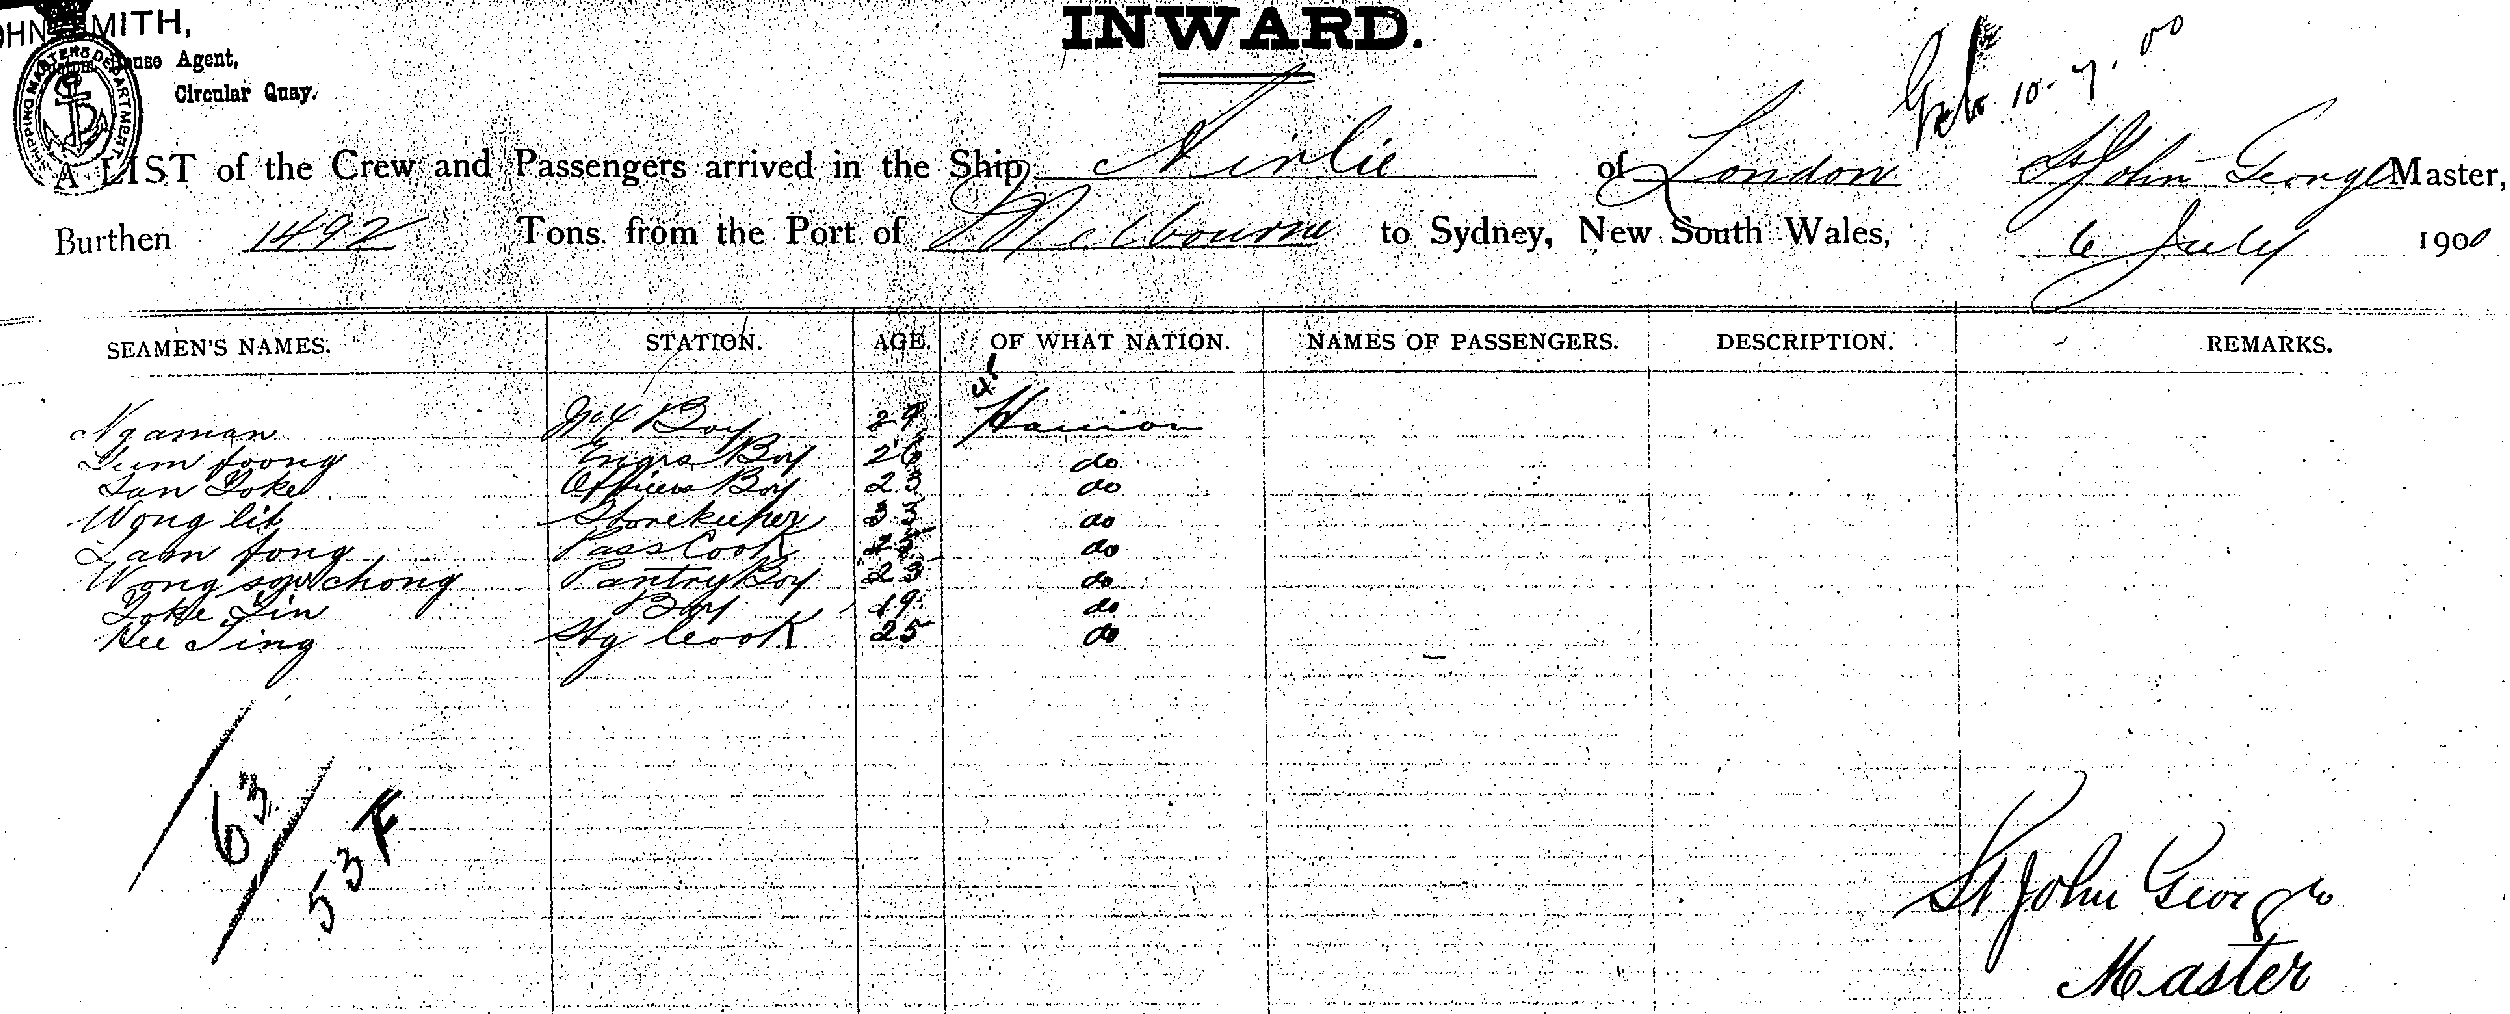 INWARD.
OHN SMITH,
House Agent,
Circular Quay.
SHIPPING MASTERS DEPARTMENT
10.7.00
A LIST of the Crew and Passengers arrived in the Ship Airlie of London St John George Master,
Burthen 1492 Tons from the Port of Melbourne to Sydney, New South Wales, 6 July 1900
SEAMEN'S NAMES. STATION. AGE. OF WHAT NATION. NAMES OF PASSENGERS. DESCRIPTION. REMARKS.
Ngaman Boy 29
Sum foong Engrs Boy 26 do
San Yoke Officers Boy 23 do
Wong lit Storekeeper 33 do
Laan fong Pass Cook do
Wong sow chong Pantry Boy 23 do
Yoke Sin Boy 19 do
Kee Sing Stg Cook 25 do
63
53 F
St John George
Master